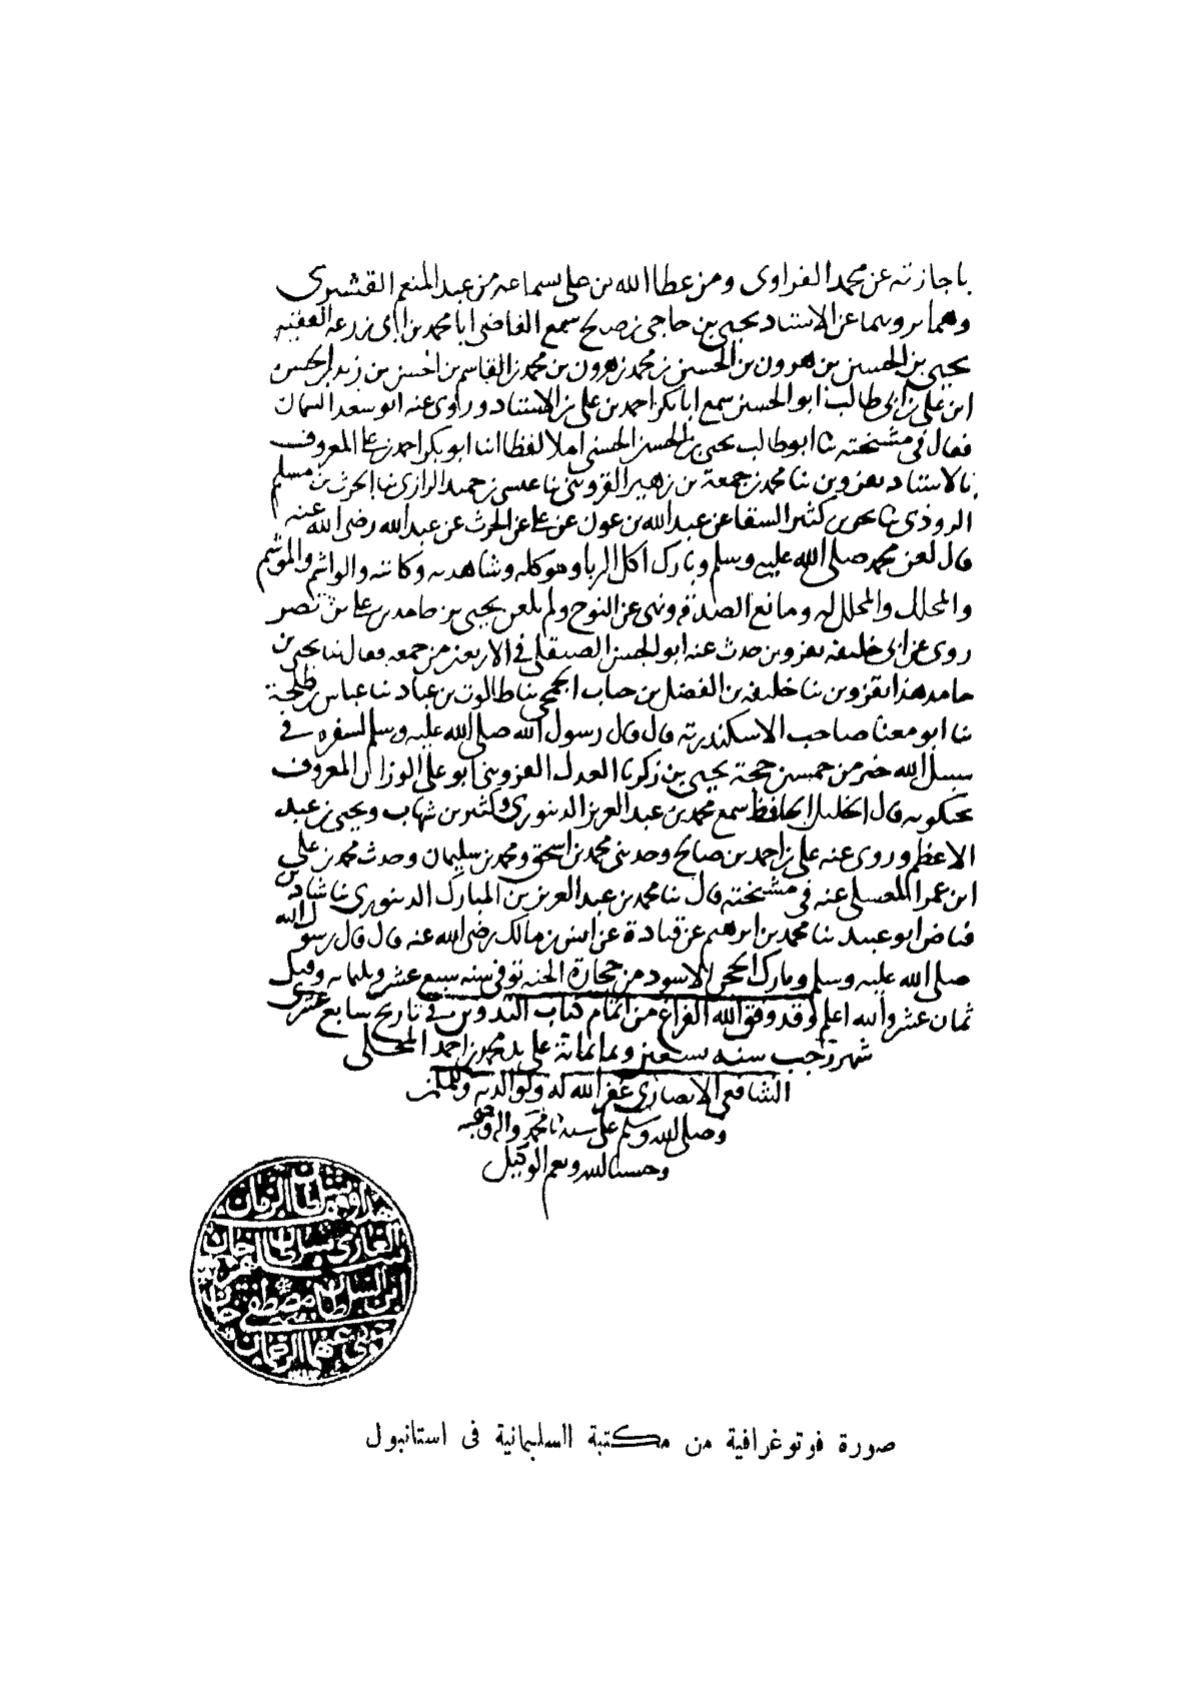 باجازته عن محمد الفراوى ومن عطا الله بن على بسماعه من عبد المنعم القشيرى
وهما يرويهما عن الاستاد يحيى بن حاجى بن صالح سمع القاضى ابا محمد بن ابى زرعة الفقيه
يحيى بن الحسين بن هرون بن الحسين بن محمد بن هرون بن محمد بن القاسم بن الحسن بن زيد بن الحسن
ابن على بن ابى طالب ابو الحسين سمع ابا بكر احمد بن على بن الاستاد وراوى عنه ابو سعد السمان
فقال فى مشيخته ثنا ابو طالب يحيى بن الحسين الحسنى املا لفظا انا ابو بكر احمد بن على المعروف
بالاستاد بقزوين ثنا محمد بن جمعة بن زهير القزوينى ثنا عيسى بن حميد الرازى ثنا الحرث بن مسلم
الروذى ثنا بحر بن كثير السقا عن عبد الله بن عون عن على عن الحرث عن عبد الله رضى الله عنه
قال لعن محمد صلى الله عليه وسلم وبارك اكل الربا وموكله وشاهديه وكاتبه والواشم والموشم
والمحلل والمحلل له ومانع الصدقة ونهى عن النوح ولم يلعن يحيى بن حامد بن على بن نصر
روى عن ابى خليفه بقزوين حدث عنه ابو الحسن الصيقلى فى الاربعين من جمعه فقال ثنا يحيى بن
حامد هذا بقزوين ثنا خليفه بن الفضل بن حباب الجمحى ثنا طالوت بن عباد ثنا عباس بن طلحة
ثنا ابو معنا صاحب الاسكندرية قال قال رسول الله صلى الله عليه وسلم لسفره فى
سبيل الله خير من خمسين حجة يحيى بن زكريا العدل القزوينى ابو على الوزان المعروف
بحيكويه قال الخليل الحافظ سمع محمد بن عبد العزيز الدينورى وكثير بن شهاب ويحيى بن عبد
الاعظم وروى عنه على بن احمد بن صالح وحدثنى محمد بن اسحق ومحمد بن سليمان وحدث محمد بن على
ابن عمر المعسلى عنه فى مشيخته قال ثنا محمد بن عبد العزيز بن المبارك الدينورى ثنا شاذ بن
فياض ابو عبيد ثنا محمد بن ابرهيم عن قتادة عن انس بن مالك رضى الله عنه قال قال رسول الله
صلى الله عليه وسلم وبارك الحجر الاسود من حجارة الجنه توفى سنه سبع عشر وثلثمايه وقيل
ثمان عشر والله اعلم وقد وفق الله الفراغ من اتمام كتاب التدوين فى تاريخ سابع عشرى
شهر رجب سنه تسعين وثمانمائة على يد محمد بن احمد المحلى
الشافعى الانصارى غفر الله له ولوالديه وللمسلمين
وصلى الله وسلم على سيدنا محمد واله وصحبه
وحسبنا الله ونعم الوكيل
هذا وقف سلطان الزمان
الغازى سلطان سليم خان
ابن السلطان مصطفى خان
عفى عنهما الرحمان
صورة فوتوغرافية من مكتبة السليمانية فى استانبول